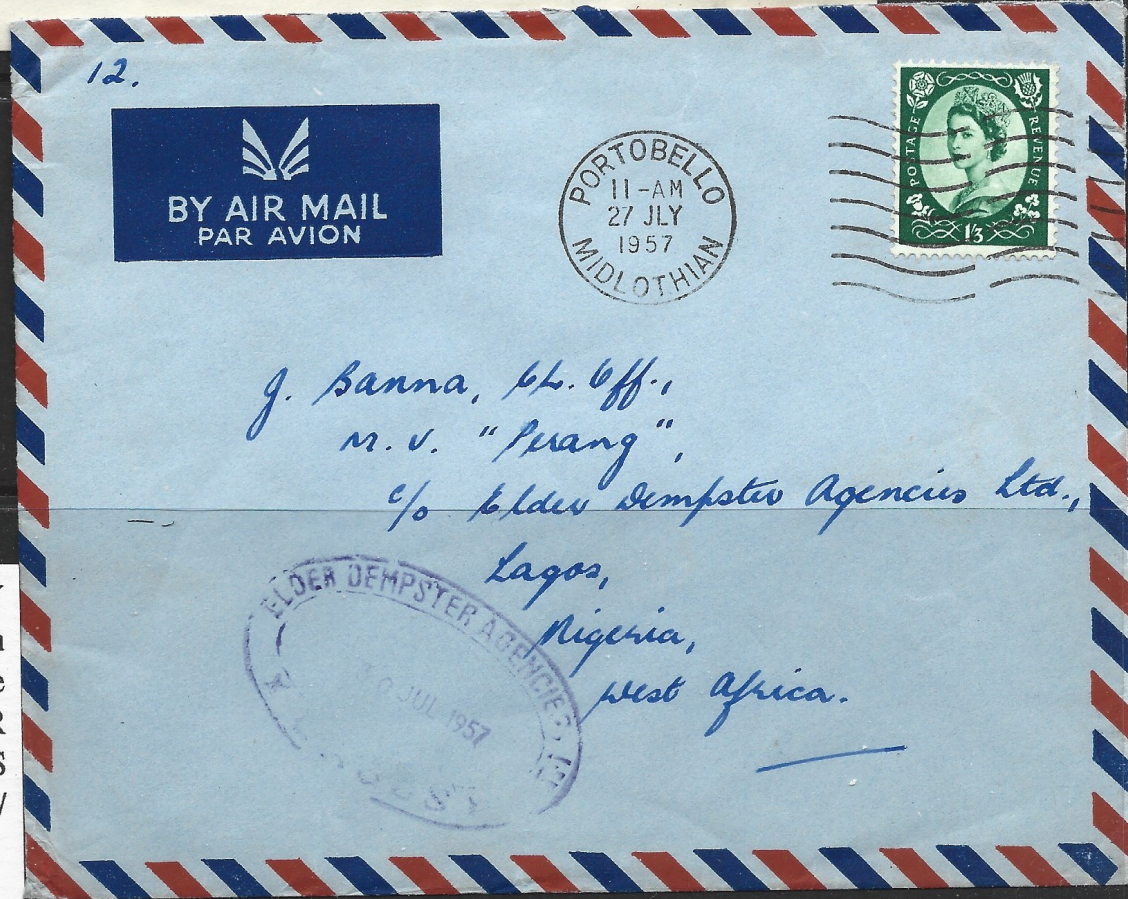 12.
BY AIR MAIL
PAR AVION
PORTOBELLO
11-AM
27 JLY
1957
MIDLOTHIAN
POSTAGE
REVENUE
1/3
J. Banna, Ch. Off.,
M.V. "Perang",
c/o Elder Dempster Agencies Ltd.,
Lagos,
Nigeria,
West Africa.
ELDER DEMPSTER AGENCIES
30 JUL 1957